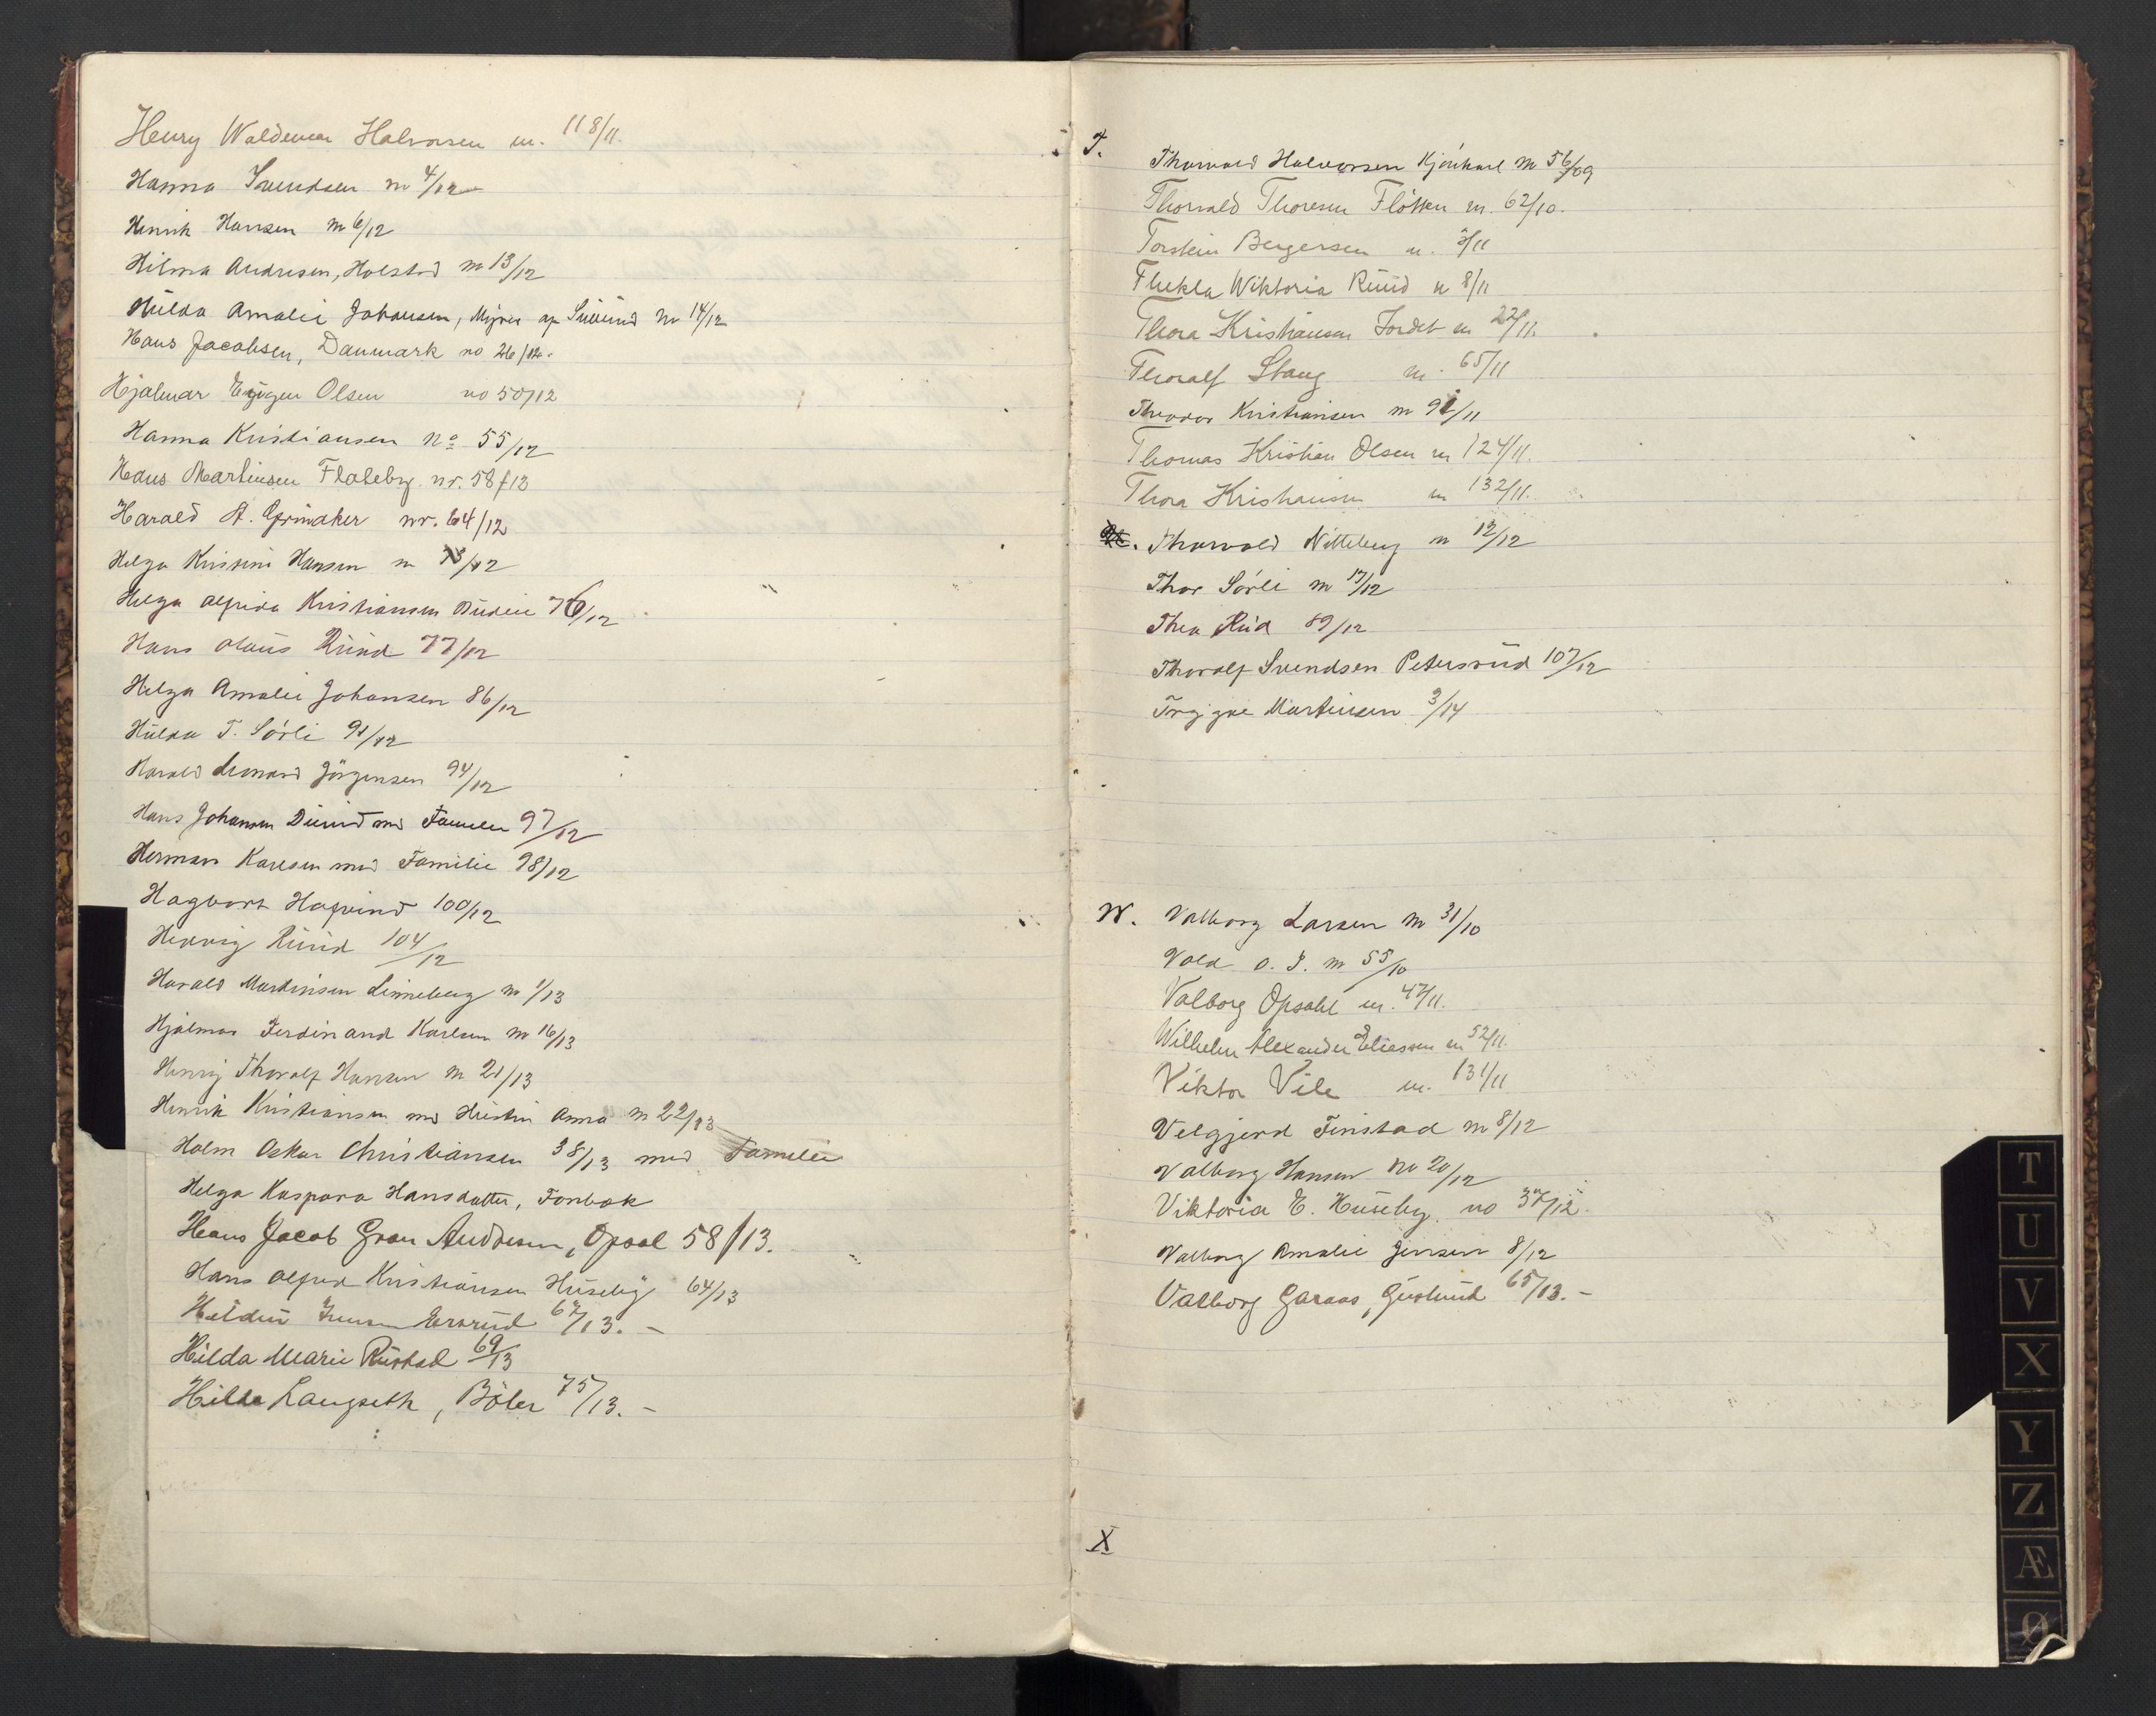 Henry Waldemar Halvorsen nr. 118/11.
Hanna Svendsen nr 4/12
Henrik Hansen nr 6/12
Hilma Andresen, Holstad nr 13/12
Hulda Amalie Johansen, Myrer ap nr 14/12
Hans Jacobsen, Danmark no 26/12.
Hjalmar Eugen Olsen no 50/12
Hanna Kristiansen No 55/12
Hans Martinsen Flateby. nr. 58/12
Harald A. Grinaker nr. 64/12
Helga Kristine Hansen nr /12
Helga Alfrida Kristiansen 76/12
Hans Olaus Ruud 77/12
Helga Amalie Johansen 86/12
Hulda T. Sörli 91/12
Harald Leonard Jörgensen 94/12
Hans Johansen Durud med Familie 97/12
Herman Karlsen med Familie 98/12
Hagbart Hagvind 100/12
Hedvig Ruud 104/12
Harald Martinsen Linneberg nr 1/13
Hjalmar Ferdinand Karlsen nr 16/13
Henry Thoralf Hansen nr 21/13
Henrik Kristiansen med Hustru Anna nr 22/13
Holm Oskar Christiansen 38/13 med Familie
Helga Kaspara Hansdatter, Fonbæk
Hans Jacob Gran Andresen, Opsal 58/13.
Hans Alfred Kristiansen Huseby 64/13
Jensen 67/13. -
Hilda Marie Rustad 69/13
Hilda Langseth, Böler 75/13. -
T.
Thorvald Halvorsen nr 56/09
Thorvald Thoresen Flötten nr. 62/10.
Torstein Bergersen nr. 3/11
Thekla Wiktoria Ruud nr 8/11
Thora Kristiansen Jordet nr 22/11.
Thoralf Stang nr. 65/11
Theodor Kristiansen nr 91/11
Thomas Kristian Olsen nr 124/11.
Thora Kristiansen nr 132/11.
Thorvald Nitteberg nr 12/12
Thor Sörli nr 17/12
Thea Rud 89/12
Thoralf Svendsen Petersrud 107/12
Trygve Martinsen 3/14
W. Valborg Larsen nr 31/10
Vold O. J. nr 55/10
Valborg Opsahl nr. 47/11.
Wilhelm Alexander Eliassen nr 52/11.
Viktor Vile nr. 131/11
Velgjerd Finstad nr 8/12
Valborg Hansen no 20/12
Viktoria E. Huseby. no 37/12.
Valborg Amalie Jensen 8/12
Valborg Garaas, 65/13. -
X
T
U
V
X
Y
Z
Æ
Ø